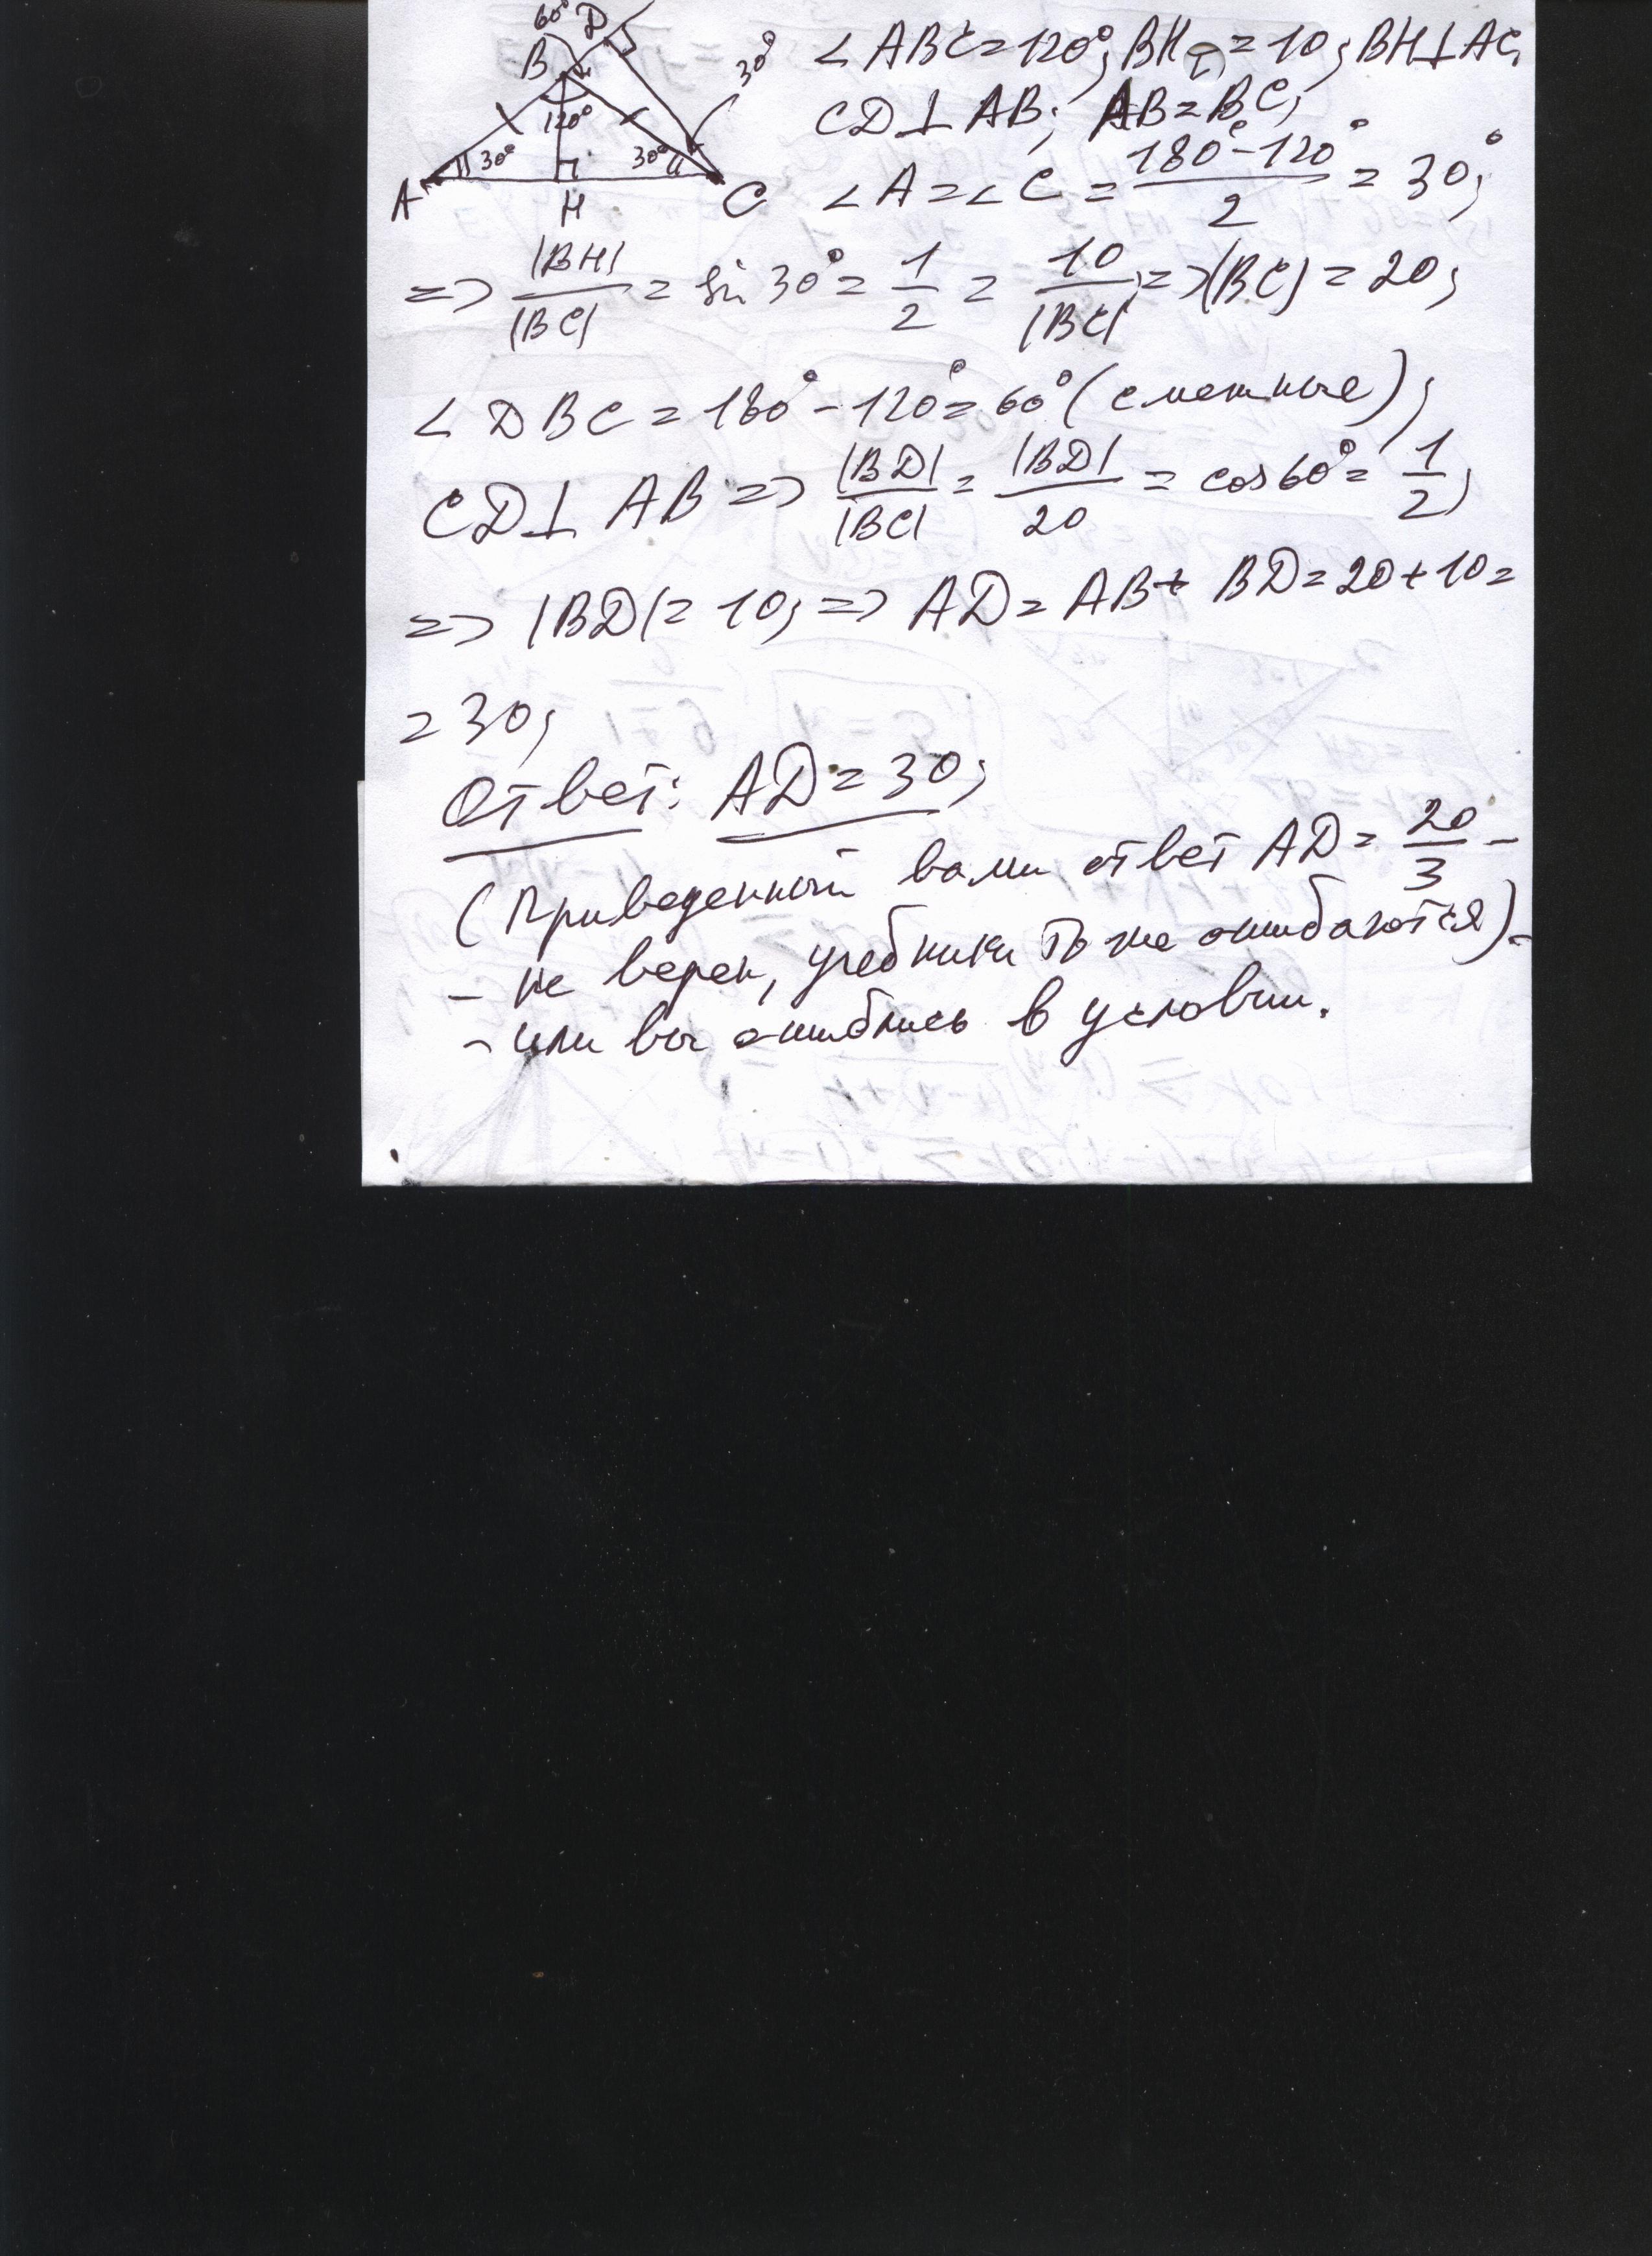 60° D
B
30°
120°
30° 30°
A H C
∠ABC=120°; BH=10; BH⊥AC,
CD⊥AB; AB=BC;
∠A=∠C = (180°-120°)/2 = 30°;
=> |BH|/|BC| = sin30° = 1/2 = 10/|BC| => |BC| = 20;
∠DBC = 180° - 120° = 60° (смежные);
CD⊥AB => |BD|/|BC| = |BD|/20 = cos60° = 1/2;
=> |BD| = 10; => AD = AB + BD = 20+10 =
= 30;
Ответ: AD = 30;
(Приведенный вами ответ AD = 20/3 -
- не верен, учебники тоже ошибаются) -
- или вы ошиблись в условии.